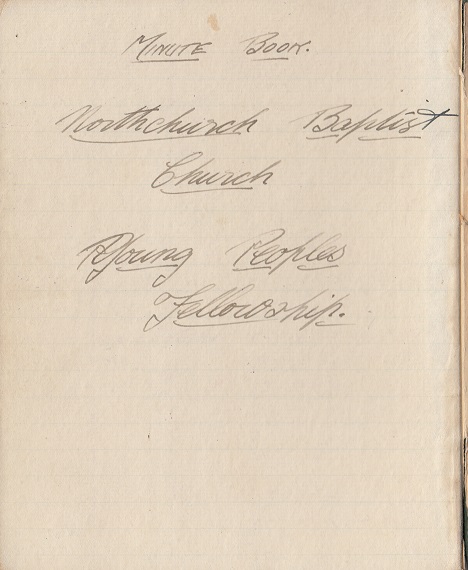 MINUTE BOOK.
Northchurch Baptist
Church
Young Peoples
Fellowship.